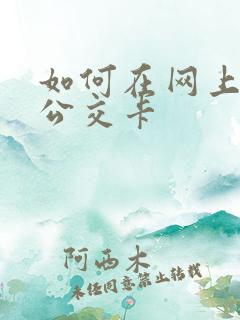 如何在网上
公交卡
阿西木
未经同意禁止转载